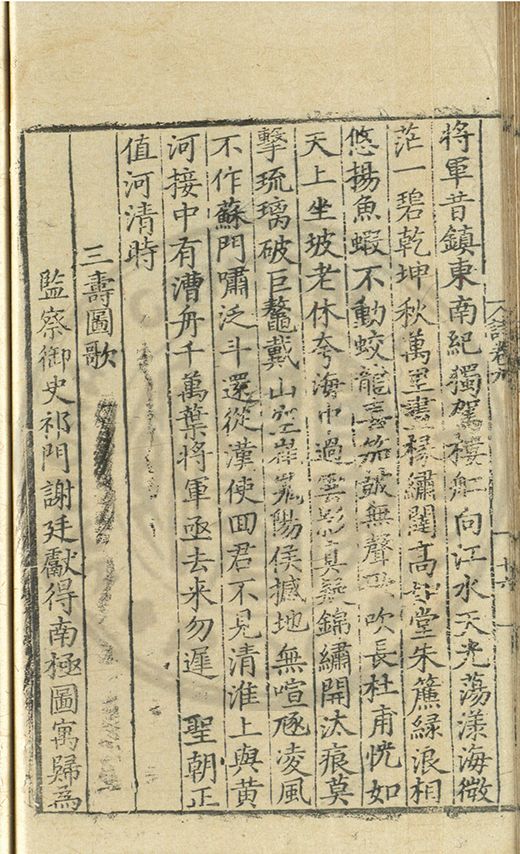 將軍昔鎮東南紀獨駕樓舡向江水天光蕩漾海微
茫一碧乾坤秋萬里畫楊繡闥高如堂朱簾緑浪相
悠揚魚蝦不動蛟龍笳鼓無聲吹長杜甫恍如
天上坐坡老休夸海中過雲影真疑錦繡開汰痕莫
擊琉璃破巨鼇戴山空崔嵬陽侯撼地無喧豗凌風
不作蘇門嘯泛斗還從漢使回君不見清淮上與黄
河接中有漕舟千萬葉將軍亟去来勿遲 聖朝正
值河清時
三壽圖歌
監察御史祁門謝廷獻得南極圖寓歸為
詩卷九
十六